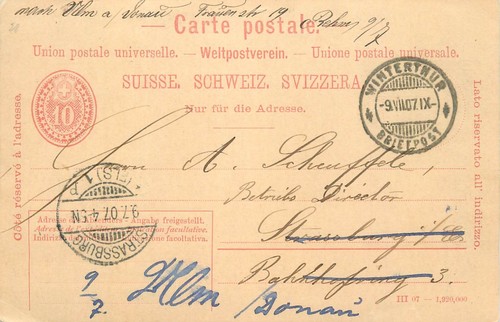 nach Ulm a/Donau Frauenstr 19
9/7
Carte postale.
Union postale universelle. — Weltpostverein. — Unione postale universale.
SUISSE. SCHWEIZ. SVIZZERA.
Nur für die Adresse.
10
WINTERTHUR
-9.VII.07.IX-
BRIEFPOST
Côté réservé à l'adresse.
Lato riservato all' indirizzo.
Herrn A. Scheuffele,
Betriebs Director
Strassburg i/Els
Bahnhofring 3.
STRASSBURG (ELS) 1
9.7.07.4-5N
Adresse de l'expéditeur facultative.
Indirizzo facoltativo.
Angabe freigestellt.
9/7. Ulm Donau
III 07 — 1,220,000